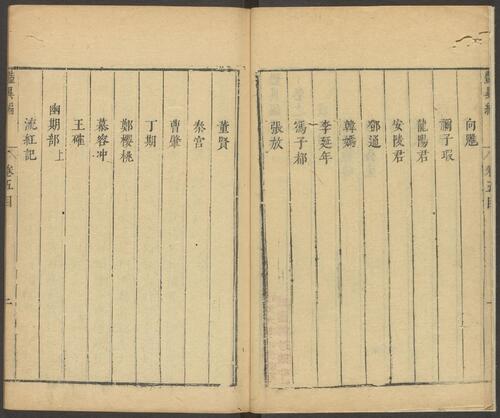 向魋
彌子瑕
龍陽君
安陵君
鄧通
韓嫣
李延年
馮子都
張放
卷五目
董賢
秦宮
曹肇
丁期
鄭櫻桃
慕容冲
王確
幽期部上
流紅記
艷異編
卷五目